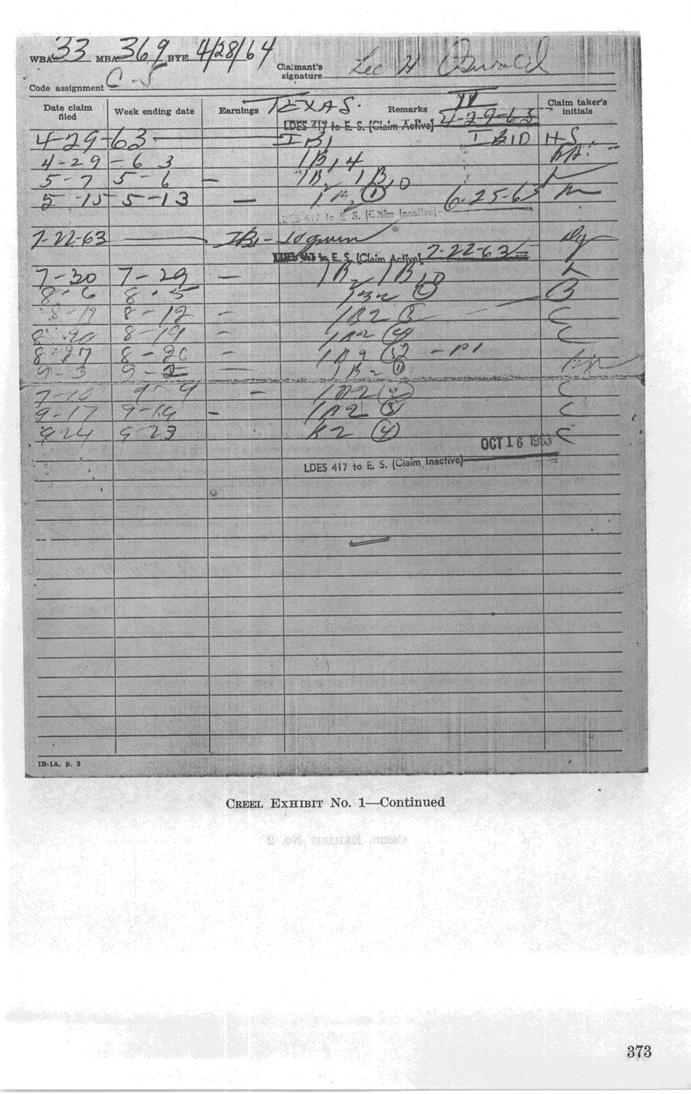 WBA 33 MBA 369 BYE 4/28/64
Claimant's signature Lee H Oswald
Code assignment C-5
Date claim filed Week ending date Earnings TEXAS. Remarks IV Claim taker's initials
LDES 417 to E. S. (Claim Active) 4-29-63
4-29-63 IB1 IB10 HS
4-29-63 IB14
5-7 5-6 — IB2 IB10
5-15 5-13 — ① 6-25-63
LDES 417 to E. S. (Claim Inactive)
7-22-63 IB1-10 given
LDES 417 to E. S. (Claim Active) 7-22-63
7-30 7-29 — IB2 IB10
8-6 8-5 — B
8-19 8-12 — IB2 ③ C
8-20 8-19 — IB2 ④ C
8-27 8-26 —
9-3 9-2 — IB2 ①
9-9 — C
9-17 9-16 - IB2 ③ C
9-24 9-23 B2 ④ C
OCT 16 1963
LDES 417 to E. S. (Claim Inactive)
IB-1A, p. 2
CREEL EXHIBIT No. 1—Continued
373